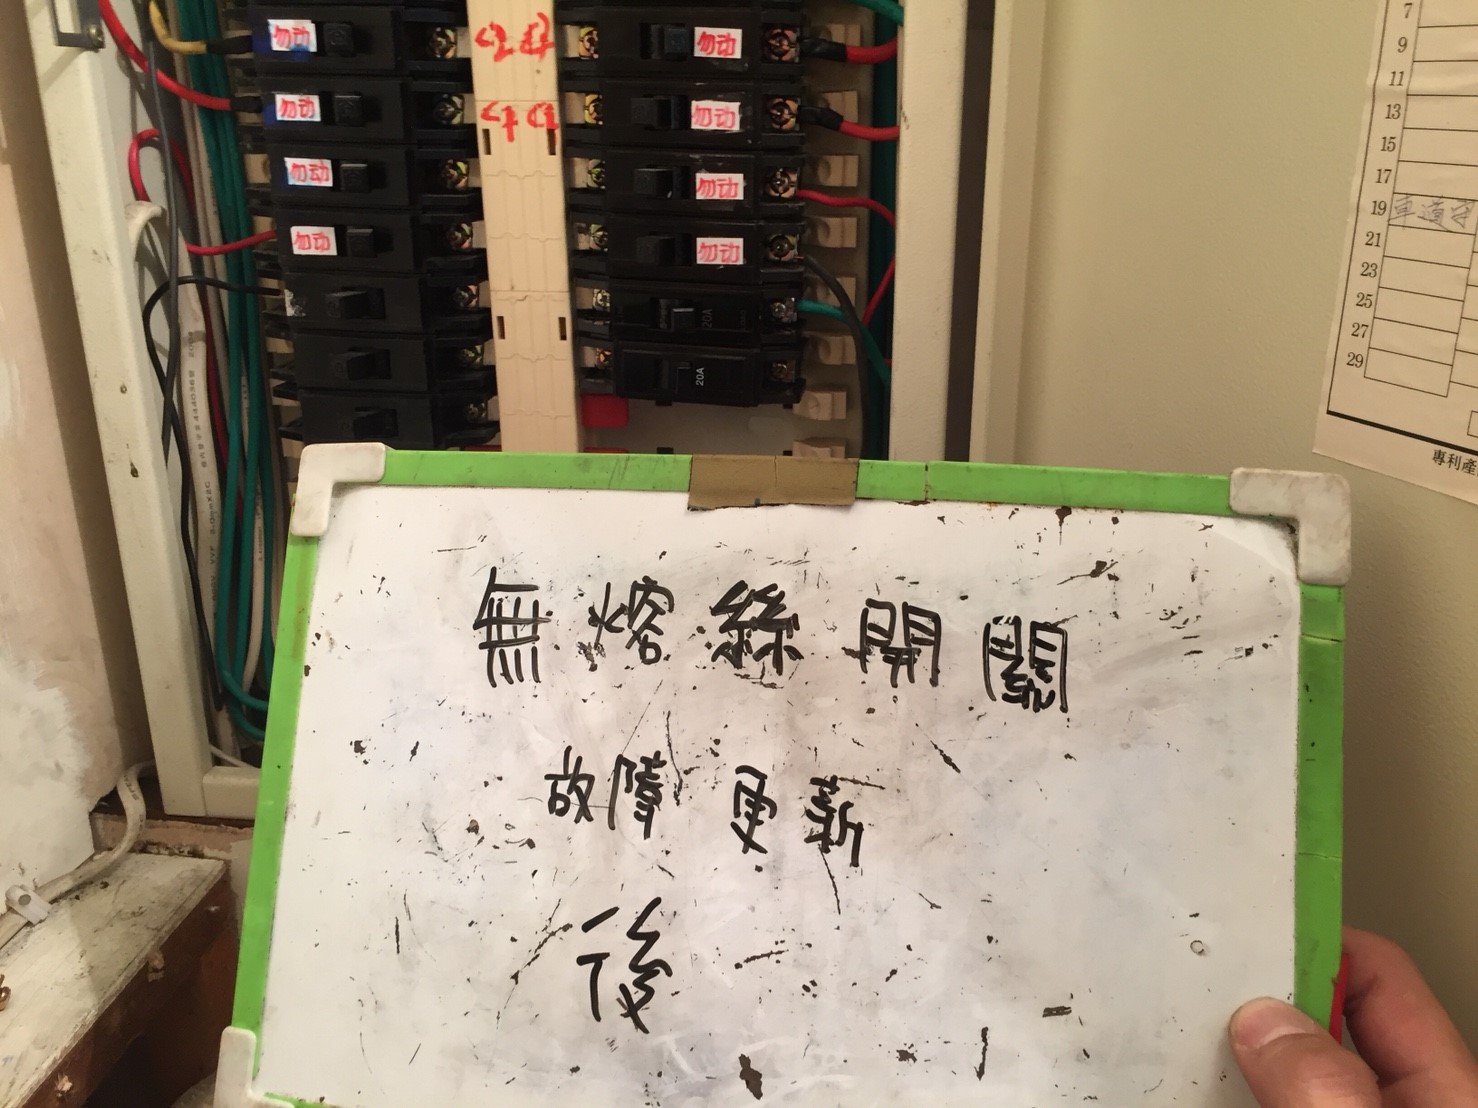 勿动
勿动
勿动
勿动
勿动
勿动
勿动
勿动
20A
20A
7
9
11
13
15
17
19 車道
21
23
25
27
29
專利產
無熔絲開關
故障更新
後